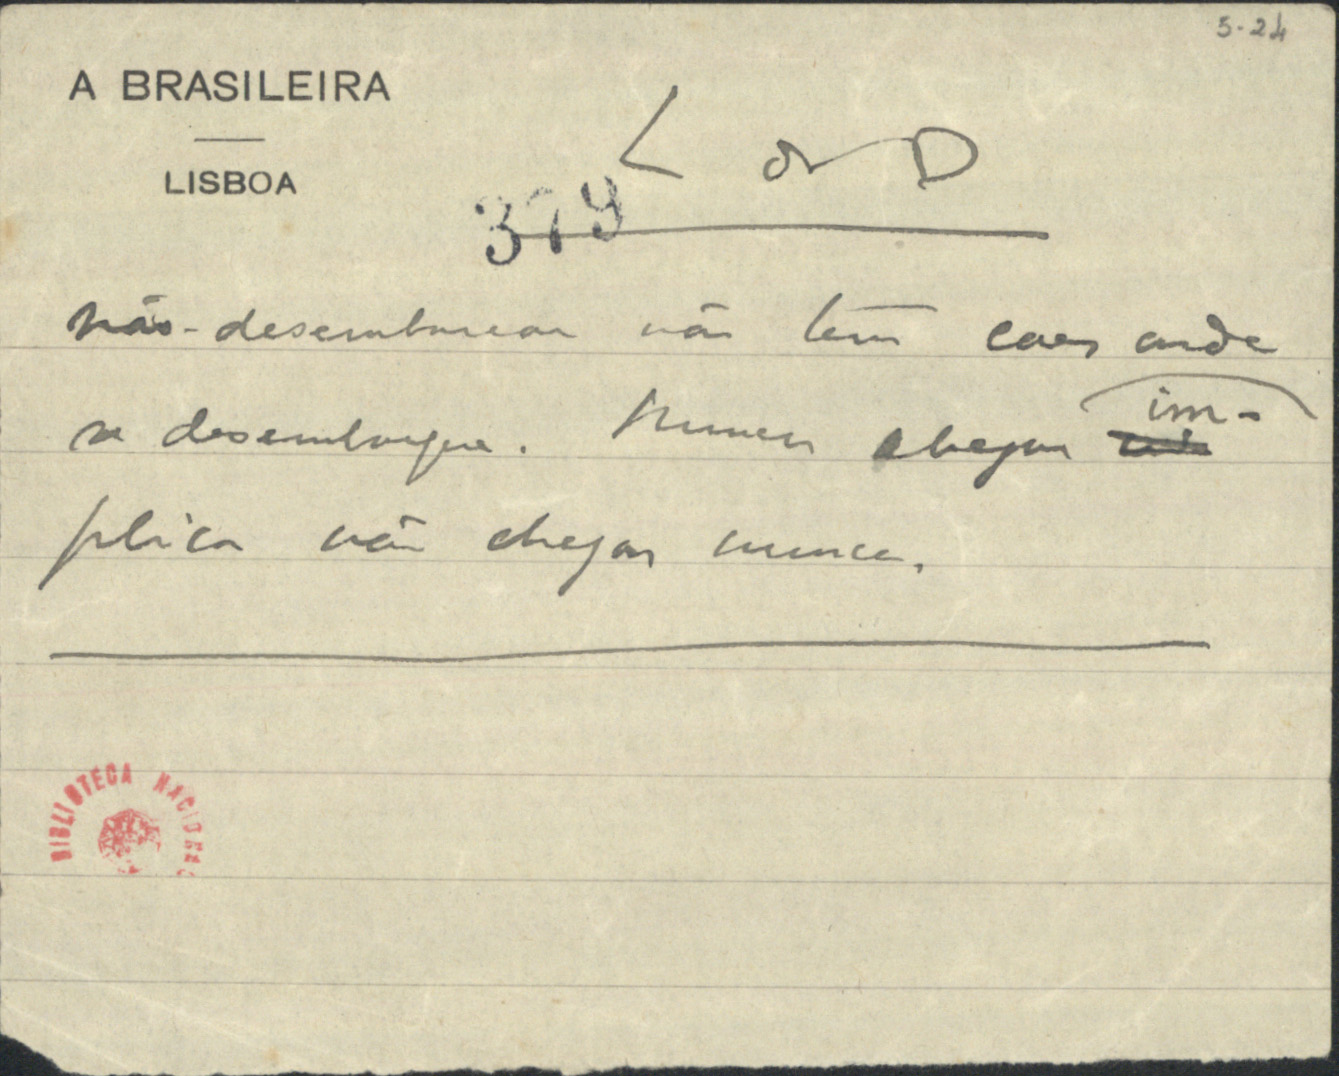 5-24
A BRASILEIRA
LISBOA
L or D
379
não-desembarcar não tem caes onde
se desembarque. Nunca chegar im-
plica não chegar nunca.
BIBLIOTECA NACIONAL